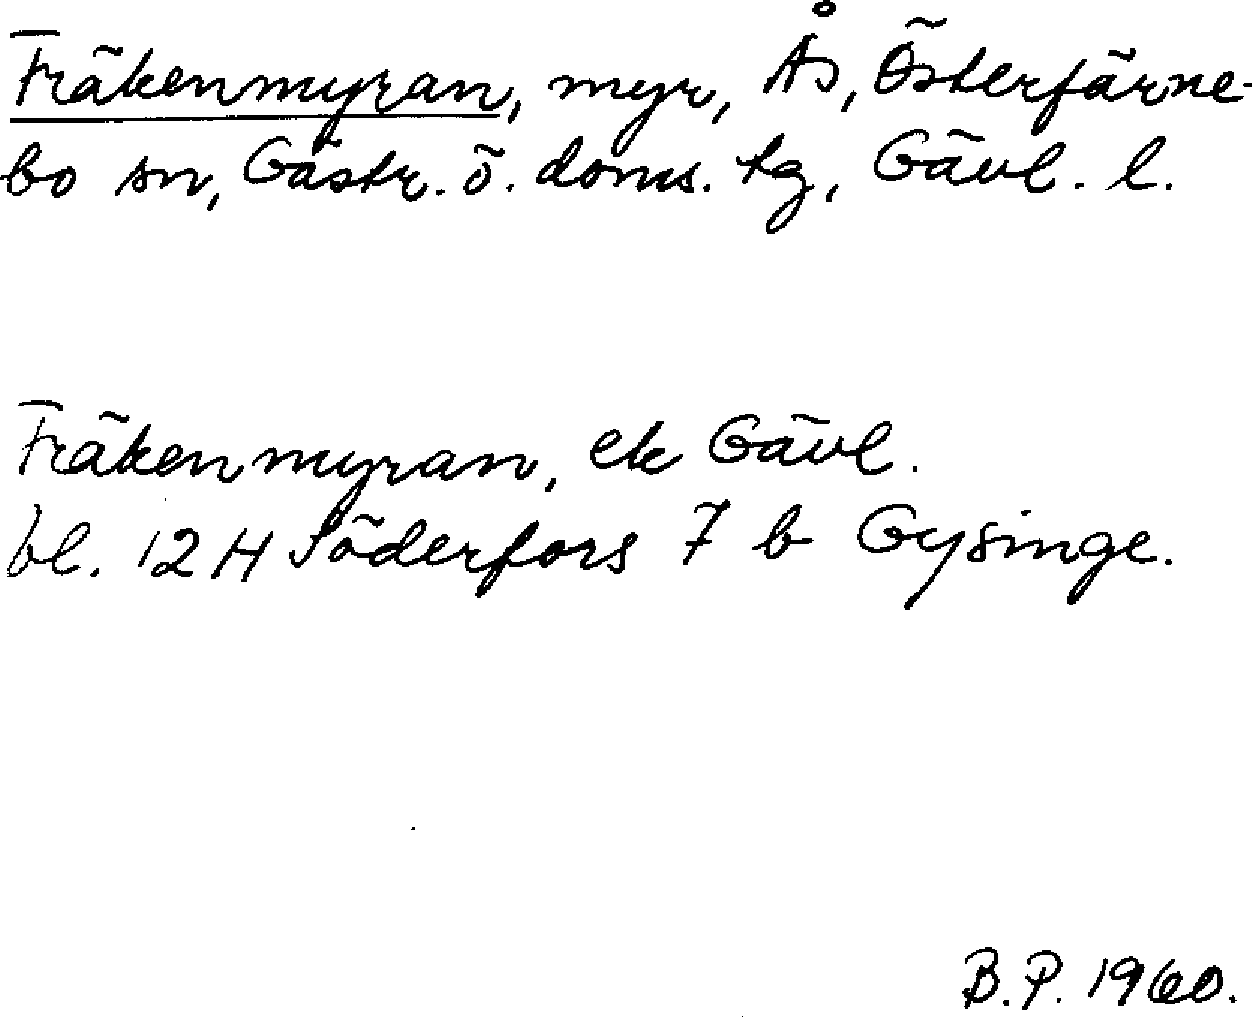 Fräkenmyran, myr, Ås, Österfärne-
bo sn, Gästr. ö. doms. tg, Gävl. l.
Fräkenmyran, ek Gävl.
bl. 12 H Söderfors 7 b Gysinge.
B.P. 1960.